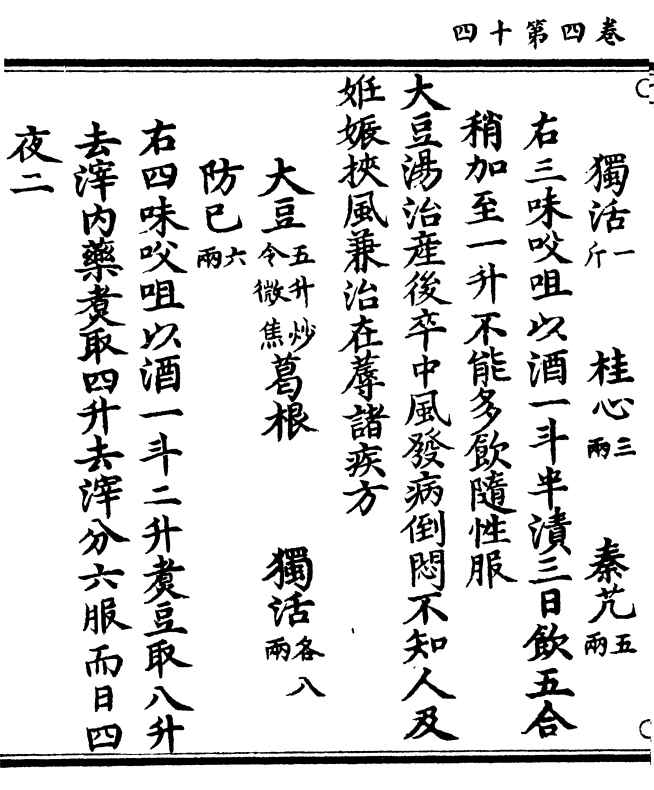 卷四第十四
獨活一斤 桂心三兩 秦艽五兩
右三味㕮咀以酒一斗半漬三日飲五合
稍加至一升不能多飲隨性服
大豆湯治産後卒中風發病倒悶不知人及
妊娠挾風兼治在蓐諸疾方
大豆五升炒令微焦 葛根 獨活各八兩
防已六兩
右四味㕮咀以酒一斗二升煑豆取八升
去滓内藥煑取四升去滓分六服而日四
夜二